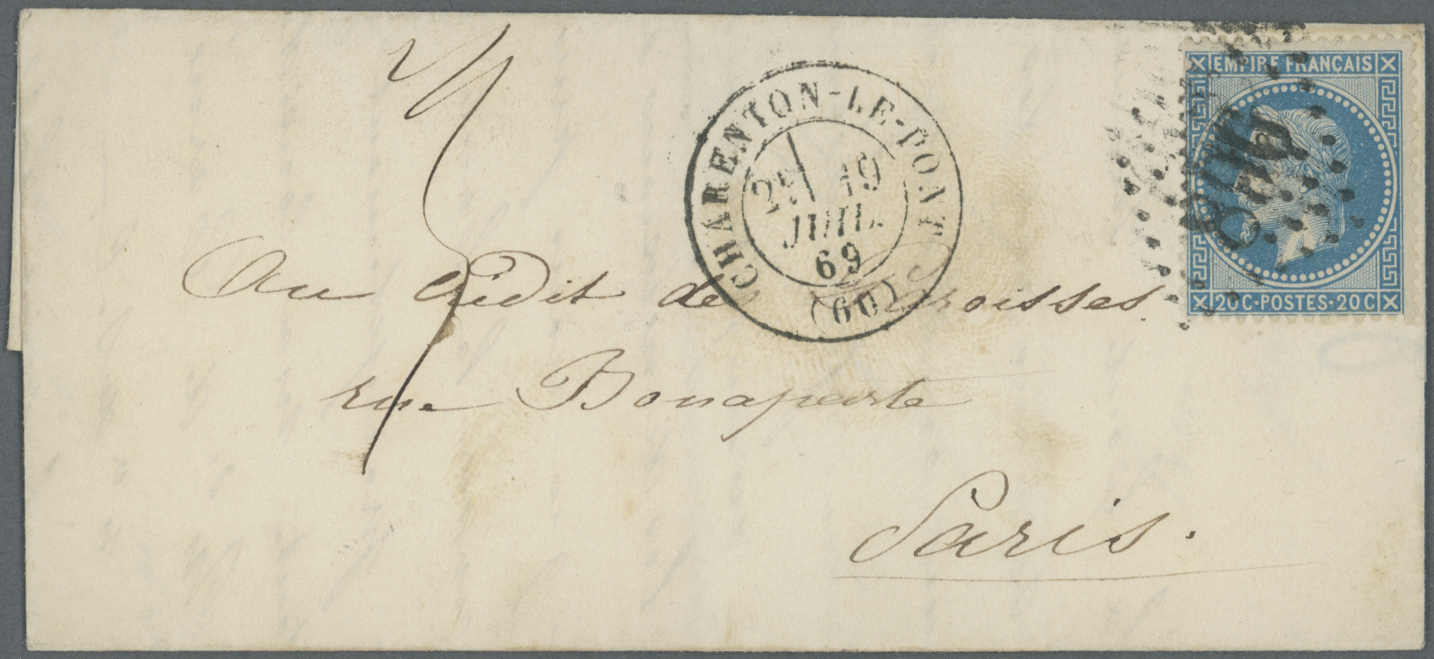 EMPIRE FRANÇAIS
20C·POSTES·20C
896
CHARENTON-LE-PONT
2E 19
JUIL.
69
(60)
Au Crédit des Paroisses
rue Bonaparte
Paris.